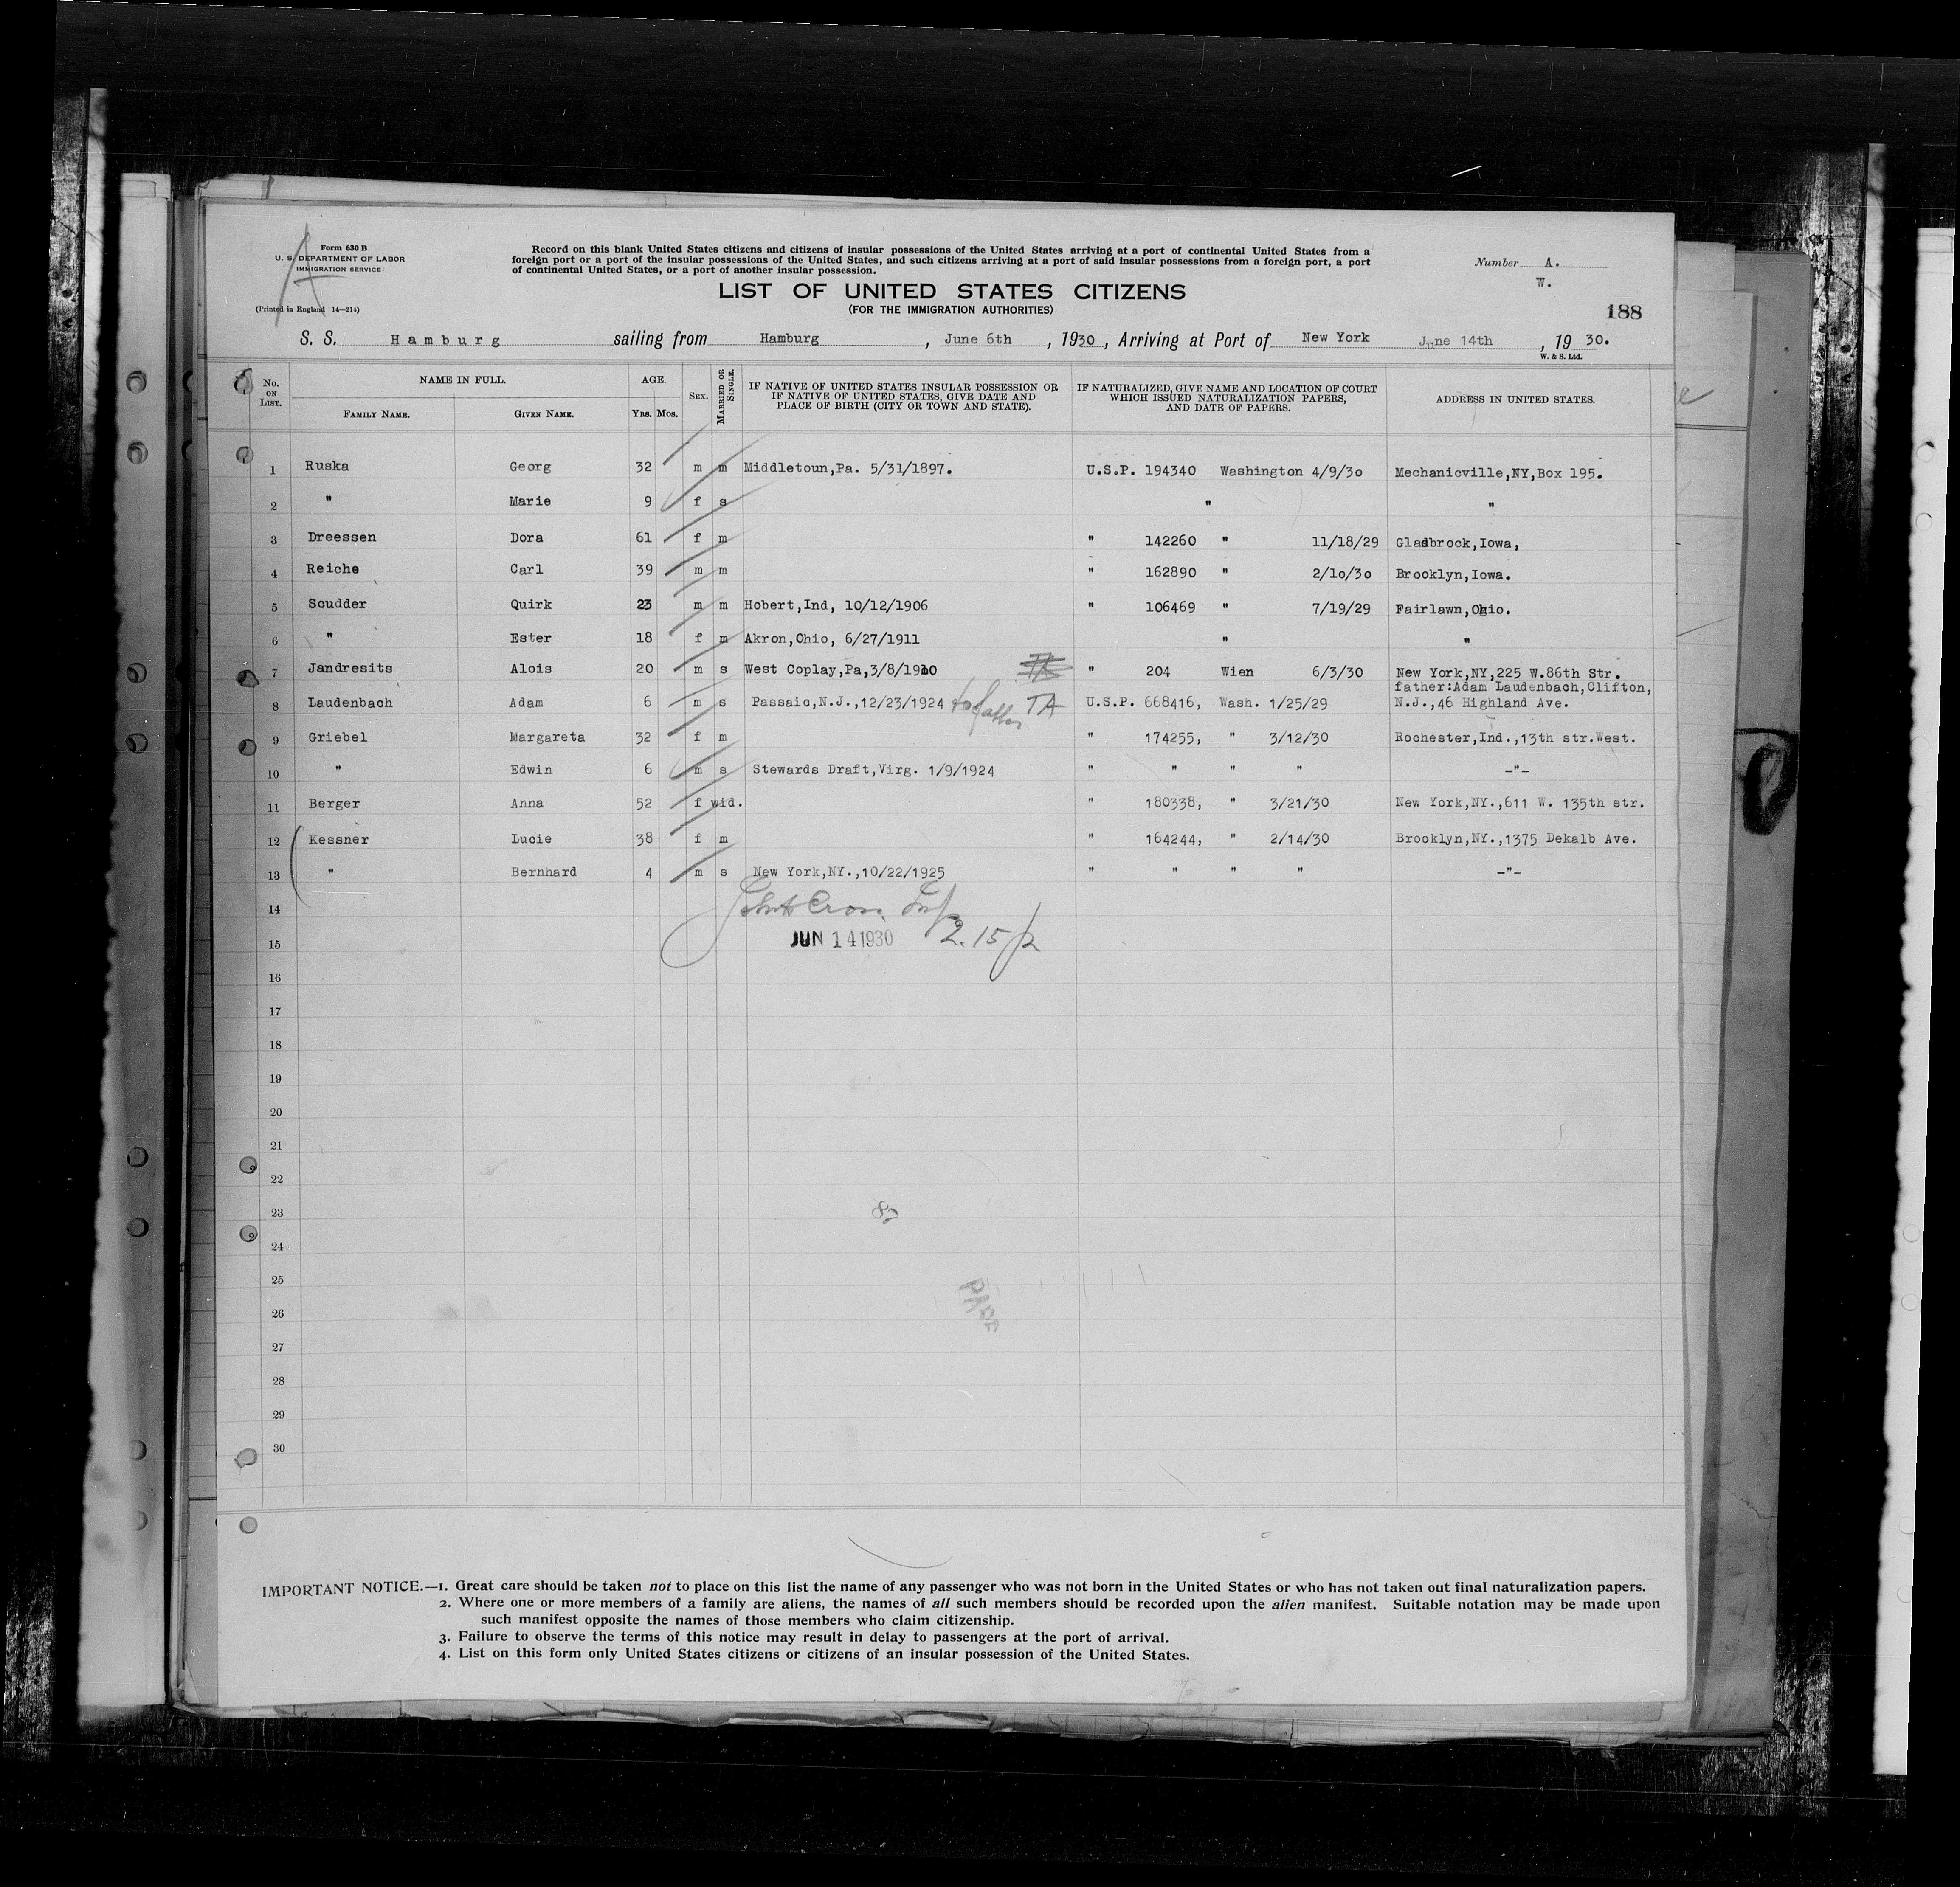 Form 630 B
U. S. DEPARTMENT OF LABOR
IMMIGRATION SERVICE
(Printed in England 14—214)
A
Record on this blank United States citizens and citizens of insular possessions of the United States arriving at a port of continental United States from a
foreign port or a port of the insular possessions of the United States, and such citizens arriving at a port of said insular possessions from a foreign port, a port
of continental United States, or a port of another insular possession.
Number A.
W.
188
LIST OF UNITED STATES CITIZENS
(FOR THE IMMIGRATION AUTHORITIES)
S. S. Hamburg sailing from Hamburg, June 6th, 1930, Arriving at Port of New York June 14th, 19 30.
W. & S. Ltd.
No. ON LIST. NAME IN FULL. AGE. SEX. MARRIED OR SINGLE. IF NATIVE OF UNITED STATES INSULAR POSSESSION OR IF NATIVE OF UNITED STATES, GIVE DATE AND PLACE OF BIRTH (CITY OR TOWN AND STATE). IF NATURALIZED, GIVE NAME AND LOCATION OF COURT WHICH ISSUED NATURALIZATION PAPERS, AND DATE OF PAPERS. ADDRESS IN UNITED STATES.
FAMILY NAME. GIVEN NAME. YRS. MOS.
1 Ruska Georg 32 m m Middletoun,Pa. 5/31/1897. U.S.P. 194340 Washington 4/9/30 Mechanicville,NY,Box 195.
2 " Marie 9 f s " "
3 Dreessen Dora 61 f m " 142260 " 11/18/29 Gladbrock,Iowa,
4 Reiche Carl 39 m m " 162890 " 2/10/30 Brooklyn,Iowa.
5 Soudder Quirk 23 m m Hobert,Ind, 10/12/1906 " 106469 " 7/19/29 Fairlawn,Ohio.
6 " Ester 18 f m Akron,Ohio, 6/27/1911 " "
7 Jandresits Alois 20 m s West Coplay,Pa,3/8/1910 " 204 Wien 6/3/30 New York,NY,225 W.86th Str.
father:Adam Laudenbach,Clifton,
8 Laudenbach Adam 6 m s Passaic,N.J.,12/23/1924 to father TA U.S.P. 668416, Wash. 1/25/29 N.J.,46 Highland Ave.
9 Griebel Margareta 32 f m " 174255, " 3/12/30 Rochester,Ind.,13th str.West.
10 " Edwin 6 m s Stewards Draft,Virg. 1/9/1924 " " " " -"-
11 Berger Anna 52 f wid. " 180338, " 3/21/30 New York,NY.,611 W. 135th str.
12 Kessner Lucie 38 f m " 164244, " 2/14/30 Brooklyn,NY.,1375 Dekalb Ave.
13 " Bernhard 4 m s New York,NY.,10/22/1925 " " " " -"-
14
15 JUN 14 1930 2.15 p
16
17
18
19
20
21
22
23
24
25
26
27
28
29
30
IMPORTANT NOTICE.—1. Great care should be taken not to place on this list the name of any passenger who was not born in the United States or who has not taken out final naturalization papers.
2. Where one or more members of a family are aliens, the names of all such members should be recorded upon the alien manifest. Suitable notation may be made upon
such manifest opposite the names of those members who claim citizenship.
3. Failure to observe the terms of this notice may result in delay to passengers at the port of arrival.
4. List on this form only United States citizens or citizens of an insular possession of the United States.